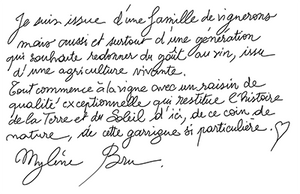 Je suis issue d'une famille de vignerons
mais aussi et surtout d'une génération
qui souhaite redonner du goût au vin, issu
d'une agriculture vivante.
Tout commence à la vigne avec un raisin de
qualité exceptionnelle qui restitue l'histoire
de la Terre et du Soleil d'ici, de ce coin de
nature, de cette garrigue si particulière.
Mylène Bru